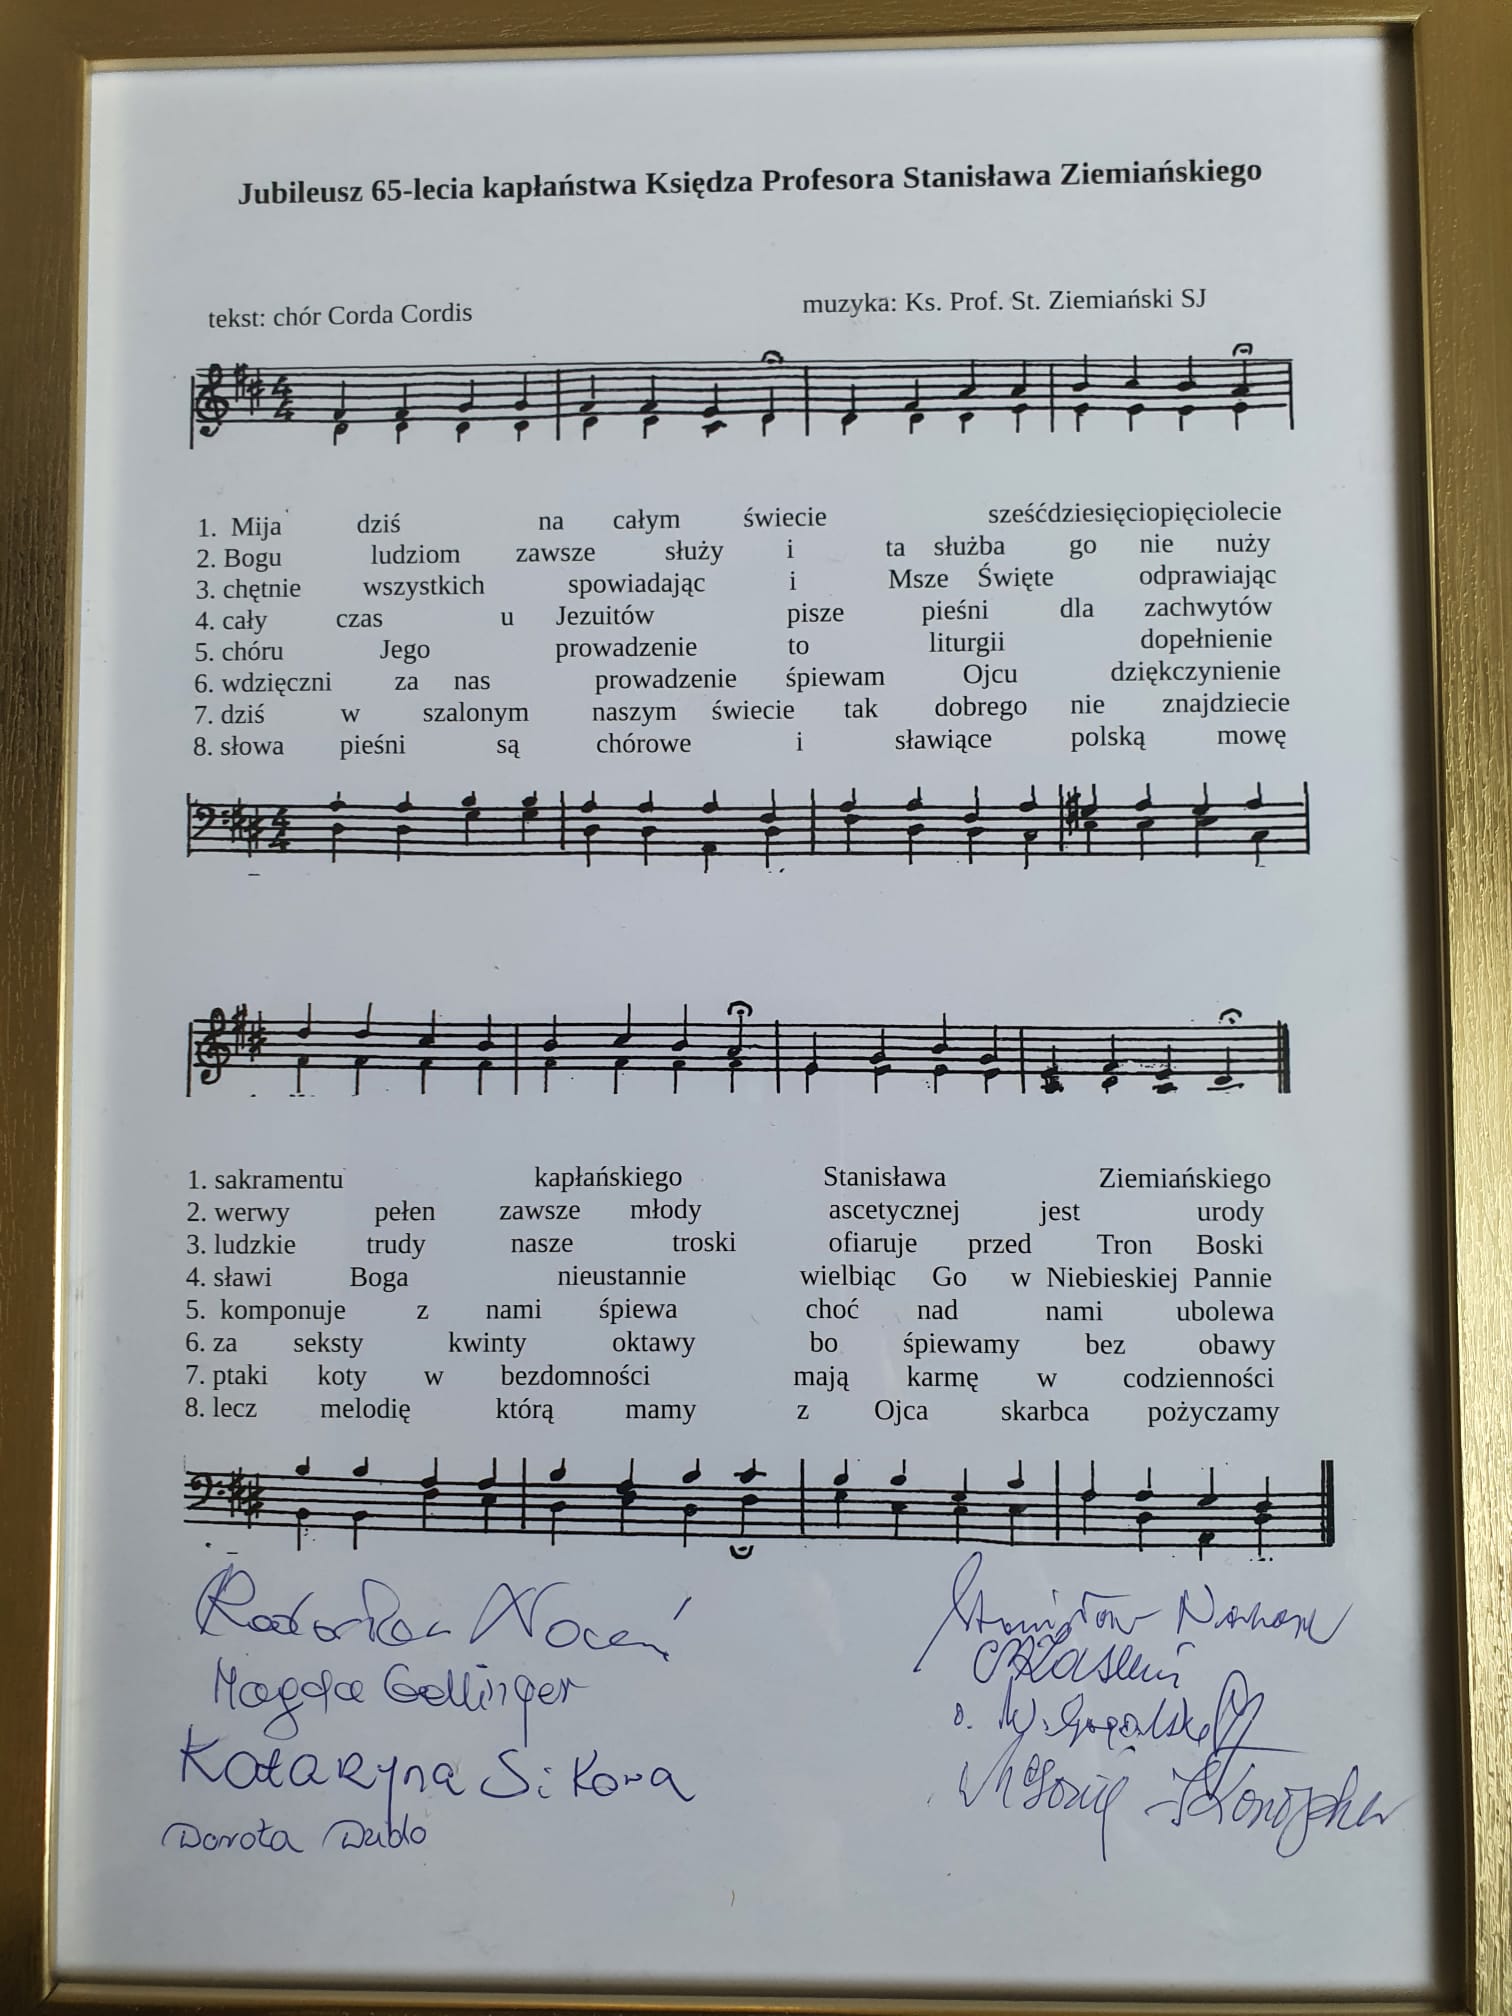 Jubileusz 65-lecia kapłaństwa Księdza Profesora Stanisława Ziemiańskiego
tekst: chór Corda Cordis
muzyka: Ks. Prof. St. Ziemiański SJ
1. Mija dziś na całym świecie sześćdziesięciopięciolecie
2. Bogu ludziom zawsze służy i ta służba go nie nuży
3. chętnie wszystkich spowiadając i Msze Święte odprawiając
4. cały czas u Jezuitów pisze pieśni dla zachwytów
5. chóru Jego prowadzenie to liturgii dopełnienie
6. wdzięczni za nas prowadzenie śpiewam Ojcu dziękczynienie
7. dziś w szalonym naszym świecie tak dobrego nie znajdziecie
8. słowa pieśni są chórowe i sławiące polską mowę
1. sakramentu kapłańskiego Stanisława Ziemiańskiego
2. werwy pełen zawsze młody ascetycznej jest urody
3. ludzkie trudy nasze troski ofiaruje przed Tron Boski
4. sławi Boga nieustannie wielbiąc Go w Niebieskiej Pannie
5. komponuje z nami śpiewa choć nad nami ubolewa
6. za seksty kwinty oktawy bo śpiewamy bez obawy
7. ptaki koty w bezdomności mają karmę w codzienności
8. lecz melodię którą mamy z Ojca skarbca pożyczamy
Magda Gollinger
Katarzyna Sikora
Dorota Dubło
Stanisław